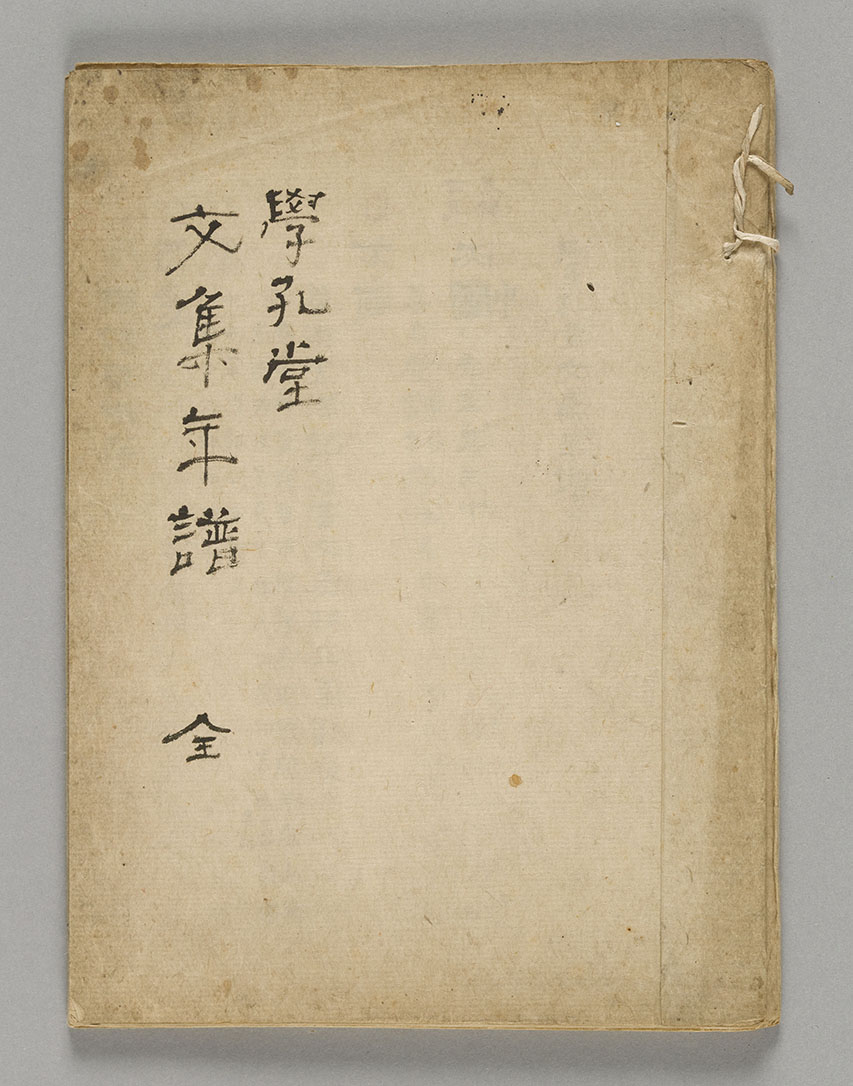 學孔堂
文集年譜 全